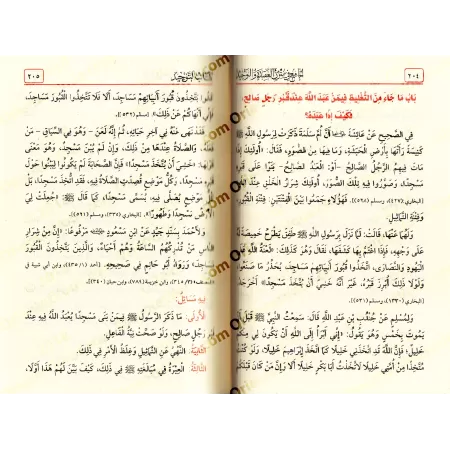 ٢٠٤
بَابُ مَا جَاءَ مِنَ التَّغْلِيظِ فِيمَنْ عَبَدَ اللَّهَ عِنْدَ قَبْرِ رَجُلٍ صَالِحٍ،
فَكَيْفَ إِذَا عَبَدَهُ؟
فِي الصَّحِيحِ عَنْ عَائِشَةَ أَنَّ أُمَّ سَلَمَةَ ذَكَرَتْ لِرَسُولِ اللَّهِ ﷺ
كَنِيسَةً رَأَتْهَا بِأَرْضِ الْحَبَشَةِ، وَمَا فِيهَا مِنَ الصُّوَرِ، فَقَالَ: «أُولَئِكِ إِذَا
مَاتَ فِيهِمُ الرَّجُلُ الصَّالِحُ - أَوِ الْعَبْدُ الصَّالِحُ - بَنَوْا عَلَى قَبْرِهِ
مَسْجِدًا، وَصَوَّرُوا فِيهِ تِلْكَ الصُّوَرَ، أُولَئِكِ شِرَارُ الْخَلْقِ عِنْدَ اللَّهِ»
[البخاري (٤٢٧)، ومسلم (٥٢٨)]. فَهَؤُلَاءِ جَمَعُوا بَيْنَ الْفِتْنَتَيْنِ، فِتْنَةِ الْقُبُورِ،
وَفِتْنَةِ التَّمَاثِيلِ.
وَلَهُمَا عَنْهَا، قَالَتْ: لَمَّا نُزِلَ بِرَسُولِ اللَّهِ ﷺ طَفِقَ يَطْرَحُ خَمِيصَةً لَهُ
عَلَى وَجْهِهِ، فَإِذَا اغْتَمَّ بِهَا كَشَفَهَا، فَقَالَ وَهُوَ كَذَلِكَ: «لَعْنَةُ اللَّهِ عَلَى
الْيَهُودِ وَالنَّصَارَى، اتَّخَذُوا قُبُورَ أَنْبِيَائِهِمْ مَسَاجِدَ» يُحَذِّرُ مَا صَنَعُوا
وَلَوْلَا ذَلِكَ أُبْرِزَ قَبْرُهُ، غَيْرَ أَنَّهُ خَشِيَ أَنْ يُتَّخَذَ مَسْجِدًا» أَخْرَجَاهُ
[البخاري (١٣٣٠)، ومسلم (٥٣١)].
وَلِمُسْلِمٍ عَنْ جُنْدُبِ بْنِ عَبْدِ اللَّهِ قَالَ: سَمِعْتُ النَّبِيَّ ﷺ قَبْلَ أَنْ
يَمُوتَ بِخَمْسٍ وَهُوَ يَقُولُ: «إِنِّي أَبْرَأُ إِلَى اللَّهِ أَنْ يَكُونَ لِي مِنْكُمْ
خَلِيلٌ، فَإِنَّ اللَّهَ قَدِ اتَّخَذَنِي خَلِيلًا كَمَا اتَّخَذَ إِبْرَاهِيمَ خَلِيلًا، وَلَوْ كُنْتُ
مُتَّخِذًا مِنْ أُمَّتِي خَلِيلًا لَاتَّخَذْتُ أَبَا بَكْرٍ خَلِيلًا أَلَا وَإِنَّ مَنْ كَانَ قَبْلَكُمْ
٢٠٥
كَانُوا يَتَّخِذُونَ قُبُورَ أَنْبِيَائِهِمْ مَسَاجِدَ، أَلَا فَلَا تَتَّخِذُوا الْقُبُورَ مَسَاجِدَ،
أَنْهَاكُمْ عَنْ ذَلِكَ» [مسلم (٥٣٢)].
فَقَدْ نَهَى عَنْهُ فِي آخِرِ حَيَاتِهِ، ثُمَّ إِنَّهُ لَعَنَ - وَهُوَ فِي السِّيَاقِ - مَنْ
فَعَلَهُ، وَالصَّلَاةُ عِنْدَهَا مِنْ ذَلِكَ، وَإِنْ لَمْ يُبْنَ مَسْجِدٌ، وَهُوَ مَعْنَى
قَوْلِهِ: «خَشِيَ أَنْ يُتَّخَذَ مَسْجِدًا» فَإِنَّ الصَّحَابَةَ لَمْ يَكُونُوا لِيَبْنُوا حَوْلَ
قَبْرِهِ مَسْجِدًا، وَكُلُّ مَوْضِعٍ قُصِدَتِ الصَّلَاةُ فِيهِ، فَقَدِ اتُّخِذَ مَسْجِدًا، بَلْ
كُلُّ مَوْضِعٍ يُصَلَّى فِيهِ، يُسَمَّى مَسْجِدًا، كَمَا قَالَ ﷺ: «جُعِلَتْ لِيَ
الْأَرْضُ مَسْجِدًا وَطَهُورًا».
وَلِأَحْمَدَ بِسَنَدٍ جَيِّدٍ عَنِ ابْنِ مَسْعُودٍ مَرْفُوعًا: «إِنَّ مِنْ شِرَارِ
النَّاسِ مَنْ تُدْرِكُهُمُ السَّاعَةُ وَهُمْ أَحْيَاءٌ، وَالَّذِينَ يَتَّخِذُونَ الْقُبُورَ
مَسَاجِدَ» وَرَوَاهُ أَبُو حَاتِمٍ فِي صَحِيحِهِ.
فِيهِ مَسَائِلُ:
الْأُولَى: مَا ذَكَرَ الرَّسُولُ فِيمَنْ بَنَى مَسْجِدًا يُعْبَدُ اللَّهُ فِيهِ عِنْدَ
قَبْرِ رَجُلٍ صَالِحٍ، وَلَوْ صَحَّتْ نِيَّةُ الْفَاعِلِ.
الثَّانِيَةُ: النَّهْيُ عَنِ التَّمَاثِيلِ وَغِلَظُ الْأَمْرِ فِي ذَلِكَ.
الثَّالِثَةُ: الْعِبْرَةُ فِي مُبَالَغَتِهِ ﷺ فِي ذَلِكَ، كَيْفَ بَيَّنَ لَهُمْ هَذَا أَوَّلًا،